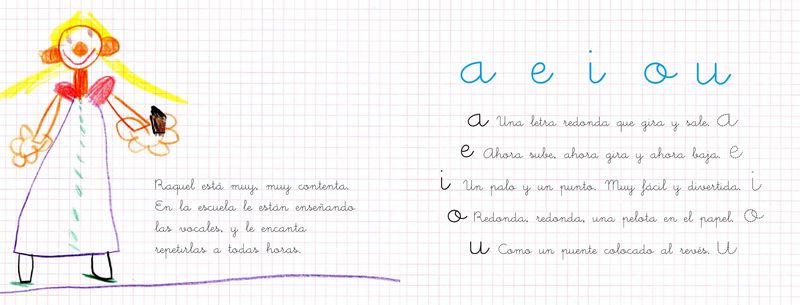 Raquel está muy, muy contenta.
En la escuela le están enseñando
las vocales, y le encanta
repetirlas a todas horas.
a e i o u
a Una letra redonda que gira y sale. a
e Ahora sube, ahora gira y ahora baja. e
i Un palo y un punto. Muy fácil y divertida. i
o Redonda, redonda, una pelota en el papel. o
u Como un puente colocado al revés. u